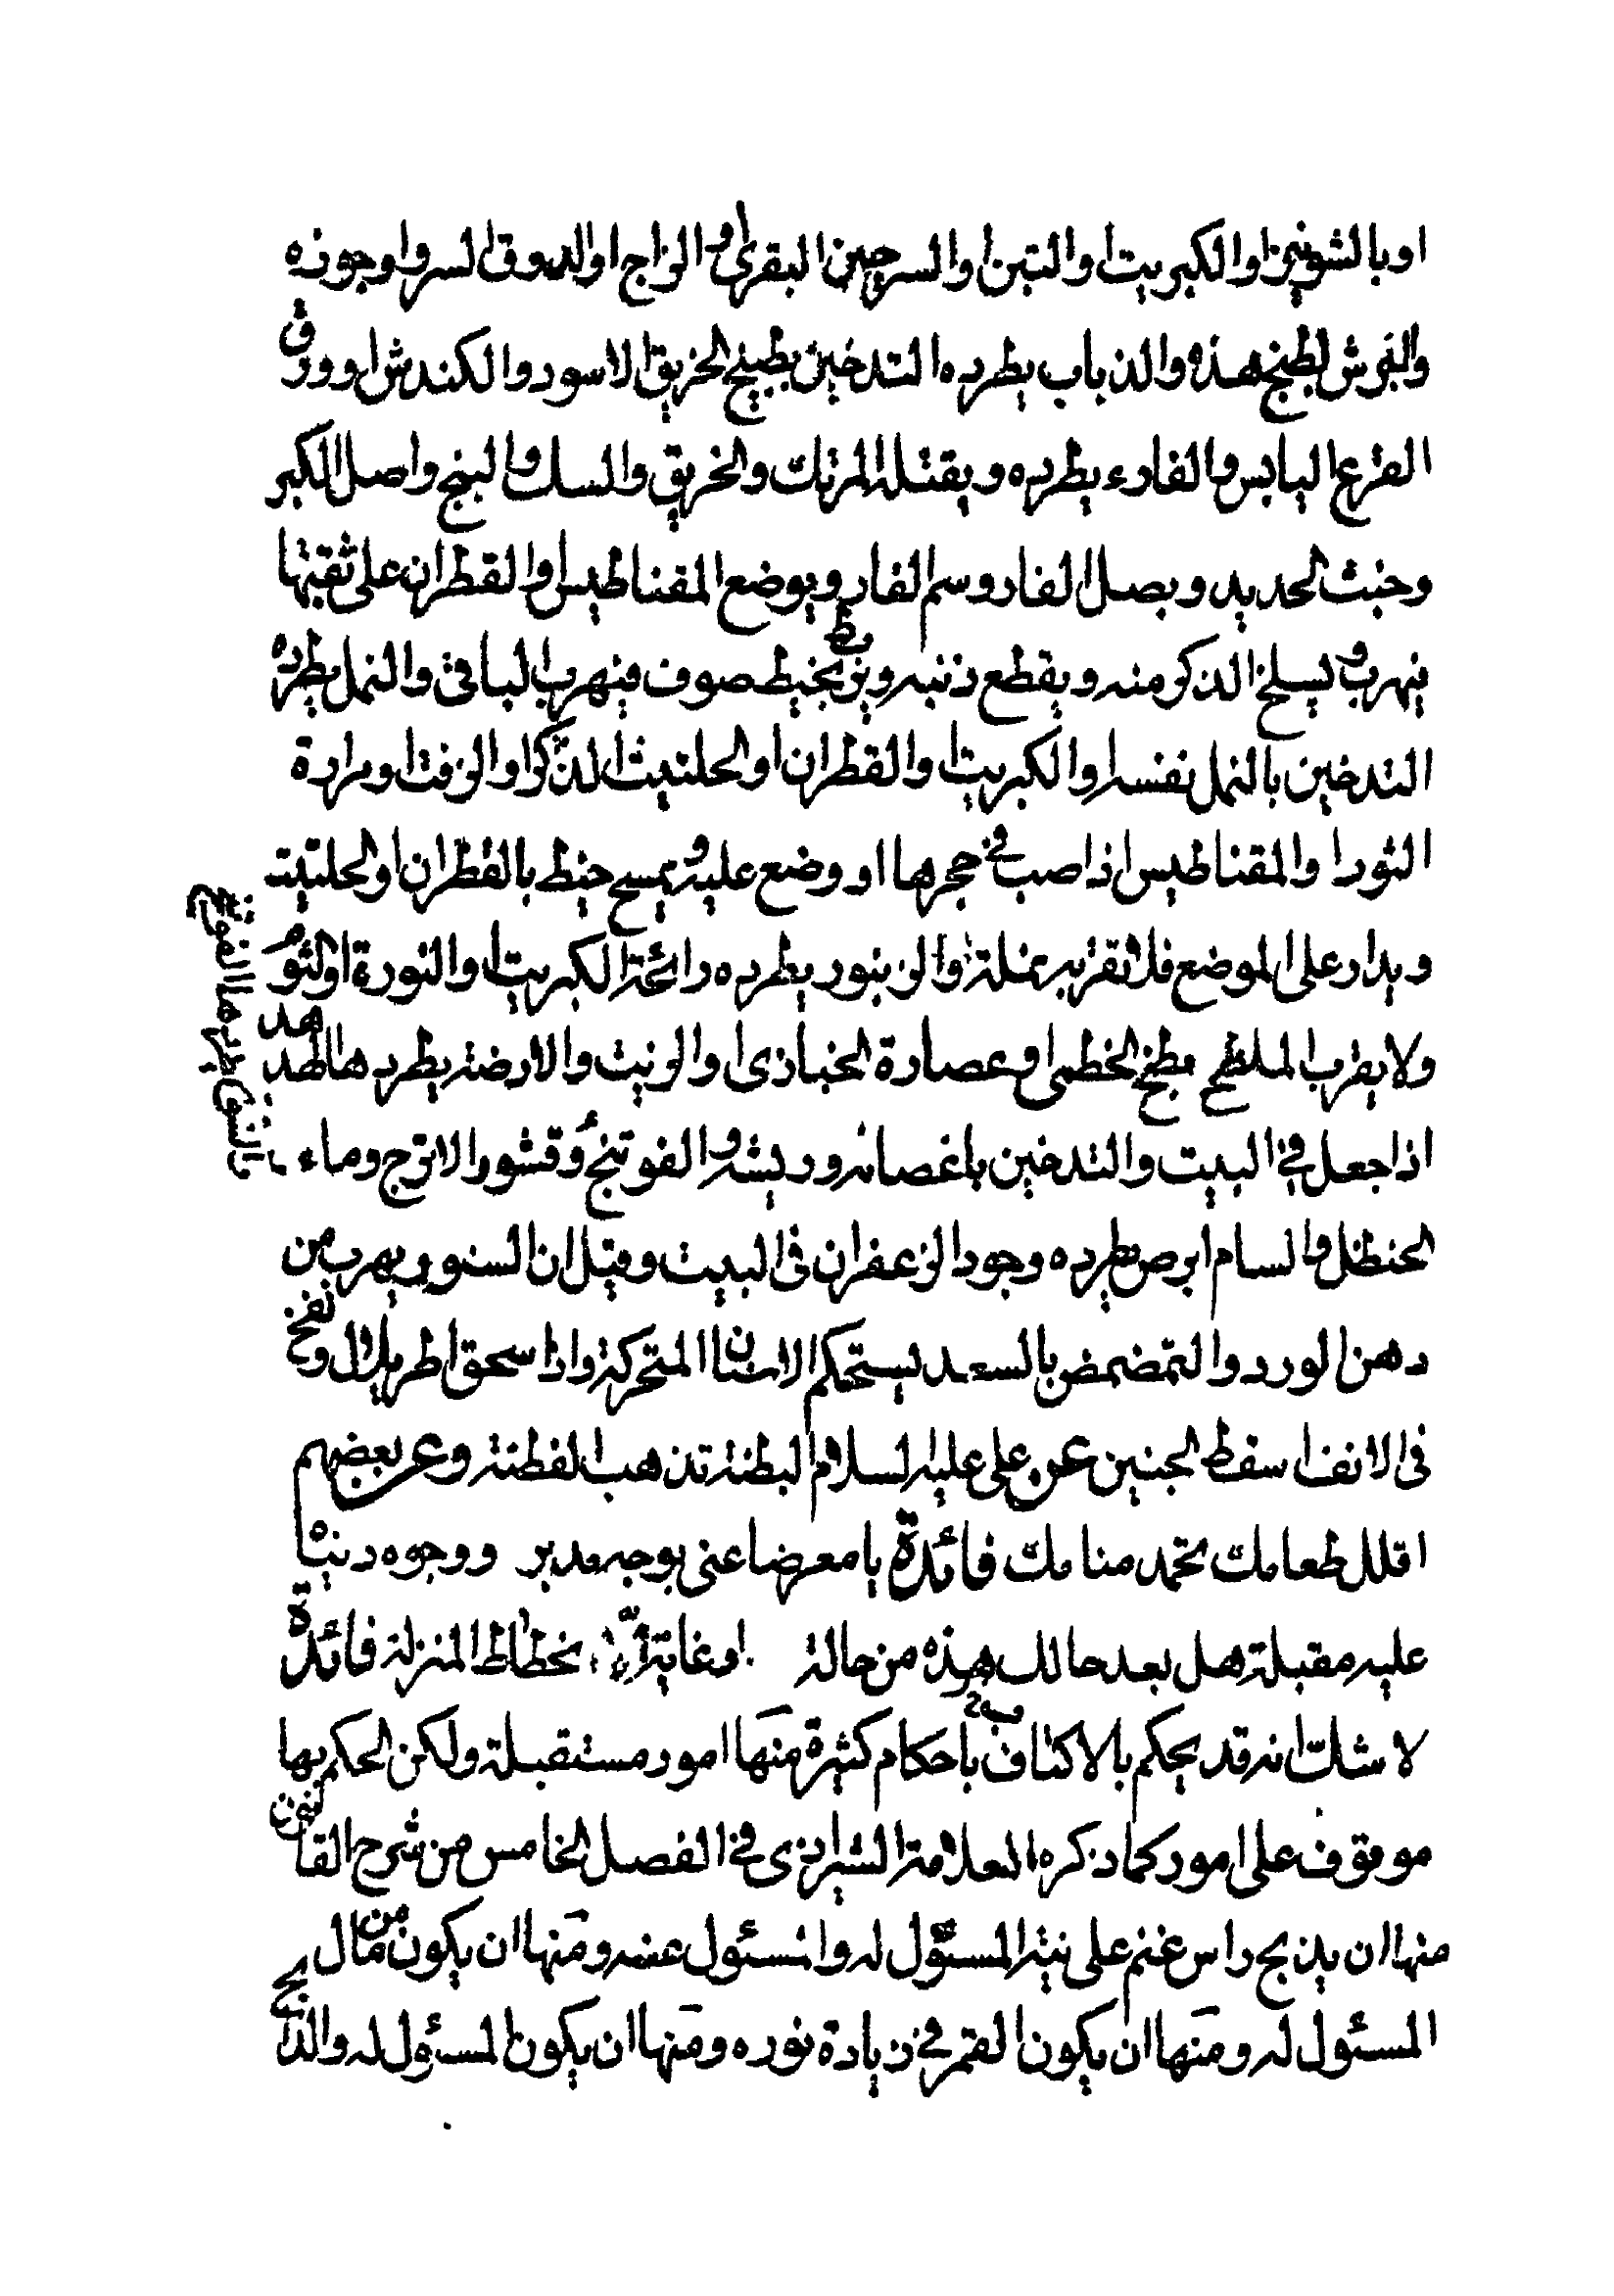 او بالشونيز او الكبريت او التبن او السرجين البقرى او الزاج او الدبوق السرو او جوزه
والفرش لطبخ هذه والذباب يطرده التدخين بطبيخ الخربق الاسود والكندش او ورق
القرع اليابس والفارء يطرده ويقتله المرتك والخربق والسك والبنج واصل الكبر
وخبث الحديد وبصل الفار وسم الفار ويوضع المقناطيس او القطران على ثقبتها
فيهرب ويسلخ الذكر منه ويقطع ذنبه ويربط بخيط صوف فيهرب الباقى والنمل يطرده
التدخين بالنمل نفسه او الكبريت او القطران او الحلتيث الذكر او الزفت او مرارة
الثور او المقناطيس اذا صب فى حجرها او وضع عليه ويمسح خيط بالقطران او الحلتيت
ويدار على الموضع فلا تقربه نملة والزنبور يطرده رائحة الكبريت او النورة او الثوم
ولا يقرب الملطخ مطبخ الخطمى او عصارة الخبازى او الزيت والارضة يطردها الهدهد
اذا جعل فى البيت والتدخين باغصانه وريشه والفوتنج وقشور الاترج وماء
الحنظل والسام ابرص يطرده وجود الزعفران فى البيت وقيل ان السنور يهرب من
دهن الورد والتمضمض بالسعد يستحكم الاسنان المتحركة واذا سحق اطريلال ونفخ
فى الانف اسقط الجنين عن على عليه السلام البطنة تذهب الفطنة وعن بعضهم
اقلل طعامك تحمد منامك فائدة يا معرضا عنى بوجه مدبر ووجوه دنياه
عليه مقبلة هل بعد حالك هذه من حالة او غاية الا انحطاط المنزلة فائدة
لا شك انه قد يحكم بالاكتاف باحكام كثيرة منها امور مستقبلة ولكن الحكم بها
موقوف على امور كما ذكره العلامة الشيرازى فى الفصل الخامس من شرح القانون
منها ان يذبح راس غنم على نية المسئول له والمسئول عنه ومنها ان يكون من مال
المسئول له ومنها ان يكون القمر فى زيادة نوره ومنها ان يكون المسئول له والذابح